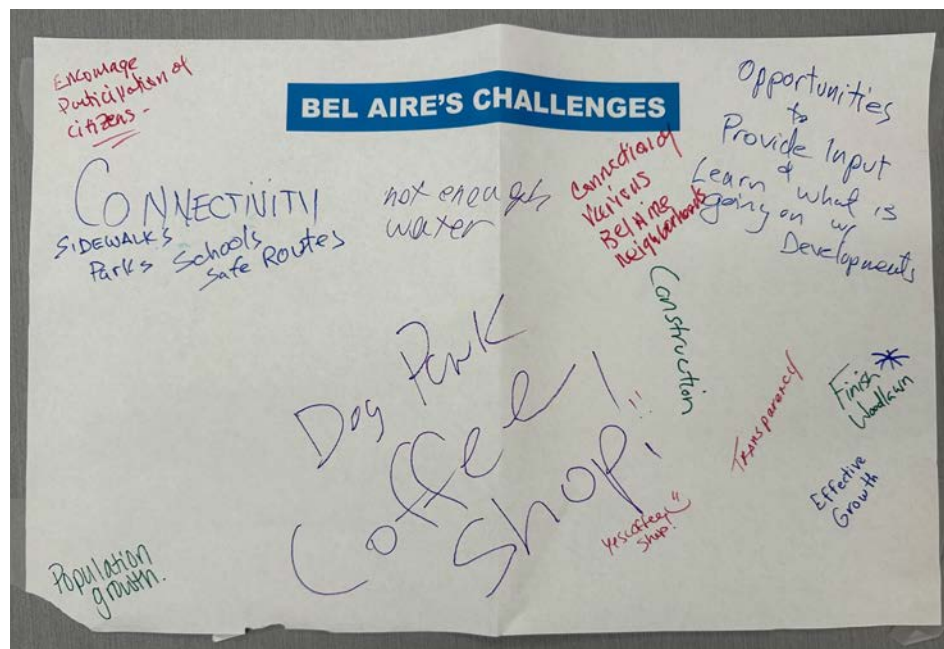 BEL AIRE'S CHALLENGES
Encourage
Participation of
citizens-
CONNECTIVITY
SIDEWALKS
Parks Schools
Safe Routes
not enough
water
Connection of
various
Bel Aire
neighborhoods
Opportunities
to
Provide Input
&
Learn what is
going on w/
Developments
Construction
Dog Park
Coffee
Shop!
!!
yes coffee
shop!
TRANSPARENCY
Finish
Woodlawn
Effective
Growth
Population
growth.